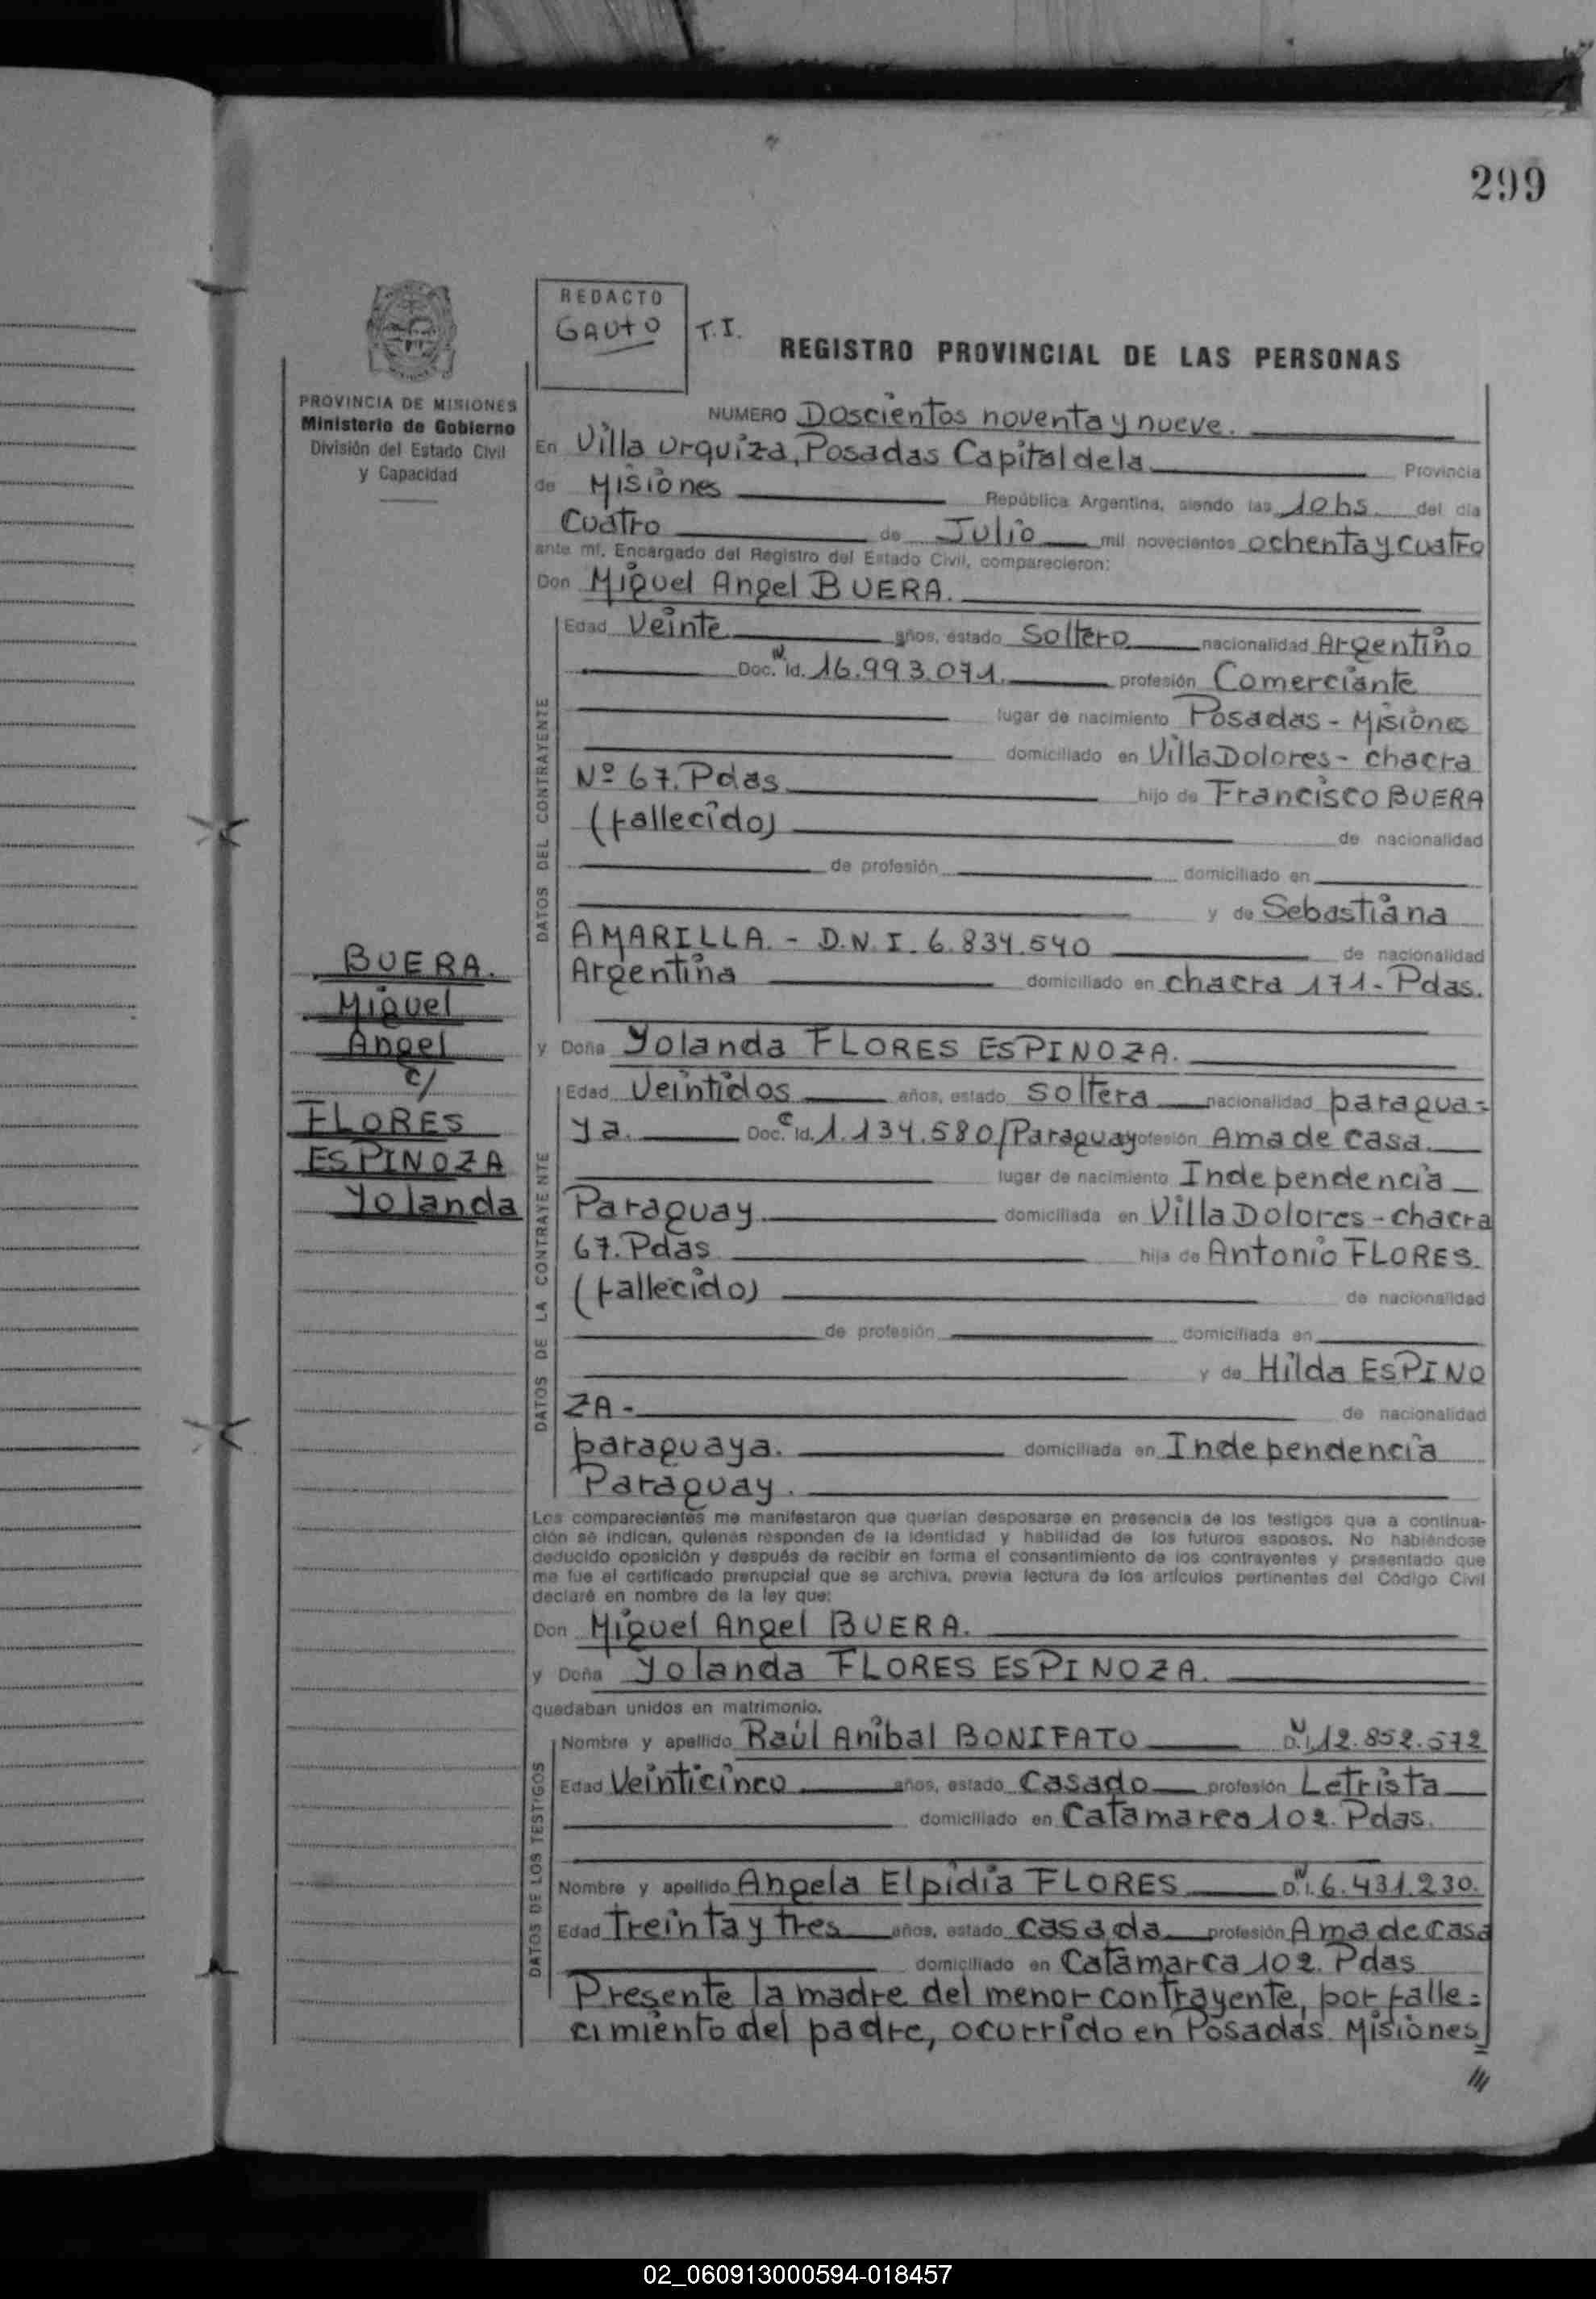 299
REDACTO
GAUTO
T.I.
REGISTRO PROVINCIAL DE LAS PERSONAS
PROVINCIA DE MISIONES
Ministerio de Gobierno
División del Estado Civil
y Capacidad
NUMERO Doscientos noventa y nueve.
En Villa Urquiza, Posadas Capital de la Provincia
de Misiones República Argentina, siendo las 10 hs. del día
Cuatro de Julio mil novecientos ochenta y cuatro
ante mí, Encargado del Registro del Estado Civil, comparecieron:
Don Miguel Angel BUERA.
DATOS DEL CONTRAYENTE
Edad Veinte años, estado Soltero nacionalidad Argentino
Doc. N. Id. 16.993.071. profesión Comerciante
lugar de nacimiento Posadas - Misiones
domiciliado en Villa Dolores - chacra
Nº 67. Pdas hijo de Francisco BUERA
(fallecido) de nacionalidad
de profesión domiciliado en
y de Sebastiana
AMARILLA. - D.N.I. 6.834.540 de nacionalidad
Argentina domiciliado en chacra 171 - Pdas.
BUERA.
Miguel
Angel
c/
FLORES
ESPINOZA
Yolanda
y Doña Yolanda FLORES ESPINOZA.
DATOS DE LA CONTRAYENTE
Edad Veintidos años, estado Soltera nacionalidad paragua=
ya. Doc. C Id. 1.134.580/Paraguay profesión Ama de casa.
lugar de nacimiento Independencia
Paraguay domiciliada en Villa Dolores - chacra
67. Pdas hija de Antonio FLORES.
(fallecido) de nacionalidad
de profesión domiciliada en
y de Hilda ESPINO
ZA - de nacionalidad
paraguaya. domiciliada en Independencia
Paraguay.
Los comparecientes me manifestaron que querían desposarse en presencia de los testigos que a continua-
ción se indican, quienes responden de la identidad y habilidad de los futuros esposos. No habiéndose
deducido oposición y después de recibir en forma el consentimiento de los contrayentes y presentado que
me fue el certificado prenupcial que se archiva, previa lectura de los artículos pertinentes del Código Civil
declaré en nombre de la ley que:
Don Miguel Angel BUERA.
y Doña Yolanda FLORES ESPINOZA.
quedaban unidos en matrimonio.
DATOS DE LOS TESTIGOS
Nombre y apellido Raúl Anibal BONIFATO D.N.I. 12.852.572
Edad Veinticinco años, estado Casado profesión Letrista
domiciliado en Catamarca 102. Pdas.
Nombre y apellido Angela Elpidia FLORES D.N.I. 6.431.230.
Edad Treinta y tres años, estado casada profesión Ama de casa
domiciliado en Catamarca 102. Pdas
Presente la madre del menor contrayente, por falle=
cimiento del padre, ocurrido en Posadas. Misiones
///
02_060913000594-018457